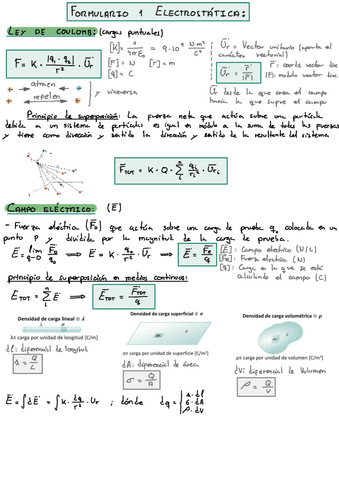 FORMULARIO 1 ELECTROSTÁTICA:
LEY DE COULOMB: (cargas puntuales)
F = K · |q₁ · q₂| / r² · Ūr
[K] = 1/4πε₀ = 9·10⁹ N·m²/C²
[F] = N [r] = m
[q] = C
Ūr = Vector unitario (aporta el carácter vectorial)
Ūr = r̄ / |r̄|
r̄: coords vector
|r̄|: modulo vector
atraen
repelen
y viceversa
Ūr desde la que crea el campo
hacia la que sufre el campo
Principio de superposición: La fuerza neta que actúa sobre una partícula
debida a un sistema de partículas es igual en módulo a la suma de todas las fuerzas
y tiene como dirección y sentido la dirección y sentido de la resultante del sistema
F̄TOT = K · Q · Σ qi/ri · Ūri
CAMPO ELÉCTRICO: (Ē)
- Fuerza eléctrica (F̄o) que actúa sobre una carga de prueba qo colocada en un
punto P y dividida por la magnitud de la carga de prueba.
Ē = lim q→0 F̄o/qo ⟹ Ē = K · qo/r² · Ūr ⟹ Ē = F̄e/q
[E]: Campo electrico (N/C)
[Fe]: Fuerza electrica (N)
[q]: Carga en la que se está
calculando el campo (C)
principio de superposición en medios continuos:
ĒTOT = Σ Ē ⟹ ĒTOT = F̄TOT/q
Densidad de carga lineal ≡ λ
λ≡ carga por unidad de longitud [C/m]
dl: diferencial de longitud
λ = Q/L
Densidad de carga superficial ≡ σ
σ≡ carga por unidad de superficie [C/m²]
dA: diferencial de área
σ = Q/A
Densidad de carga volumétrica ≡ ρ
ρ≡ carga por unidad de volumen [C/m³]
dV: diferencial de Volumen
ρ = Q/V
Ē = ∫dĒ = ∫K · dq/r² · Ur ; dónde dq = { λ·dl
σ·dA
ρ·dV